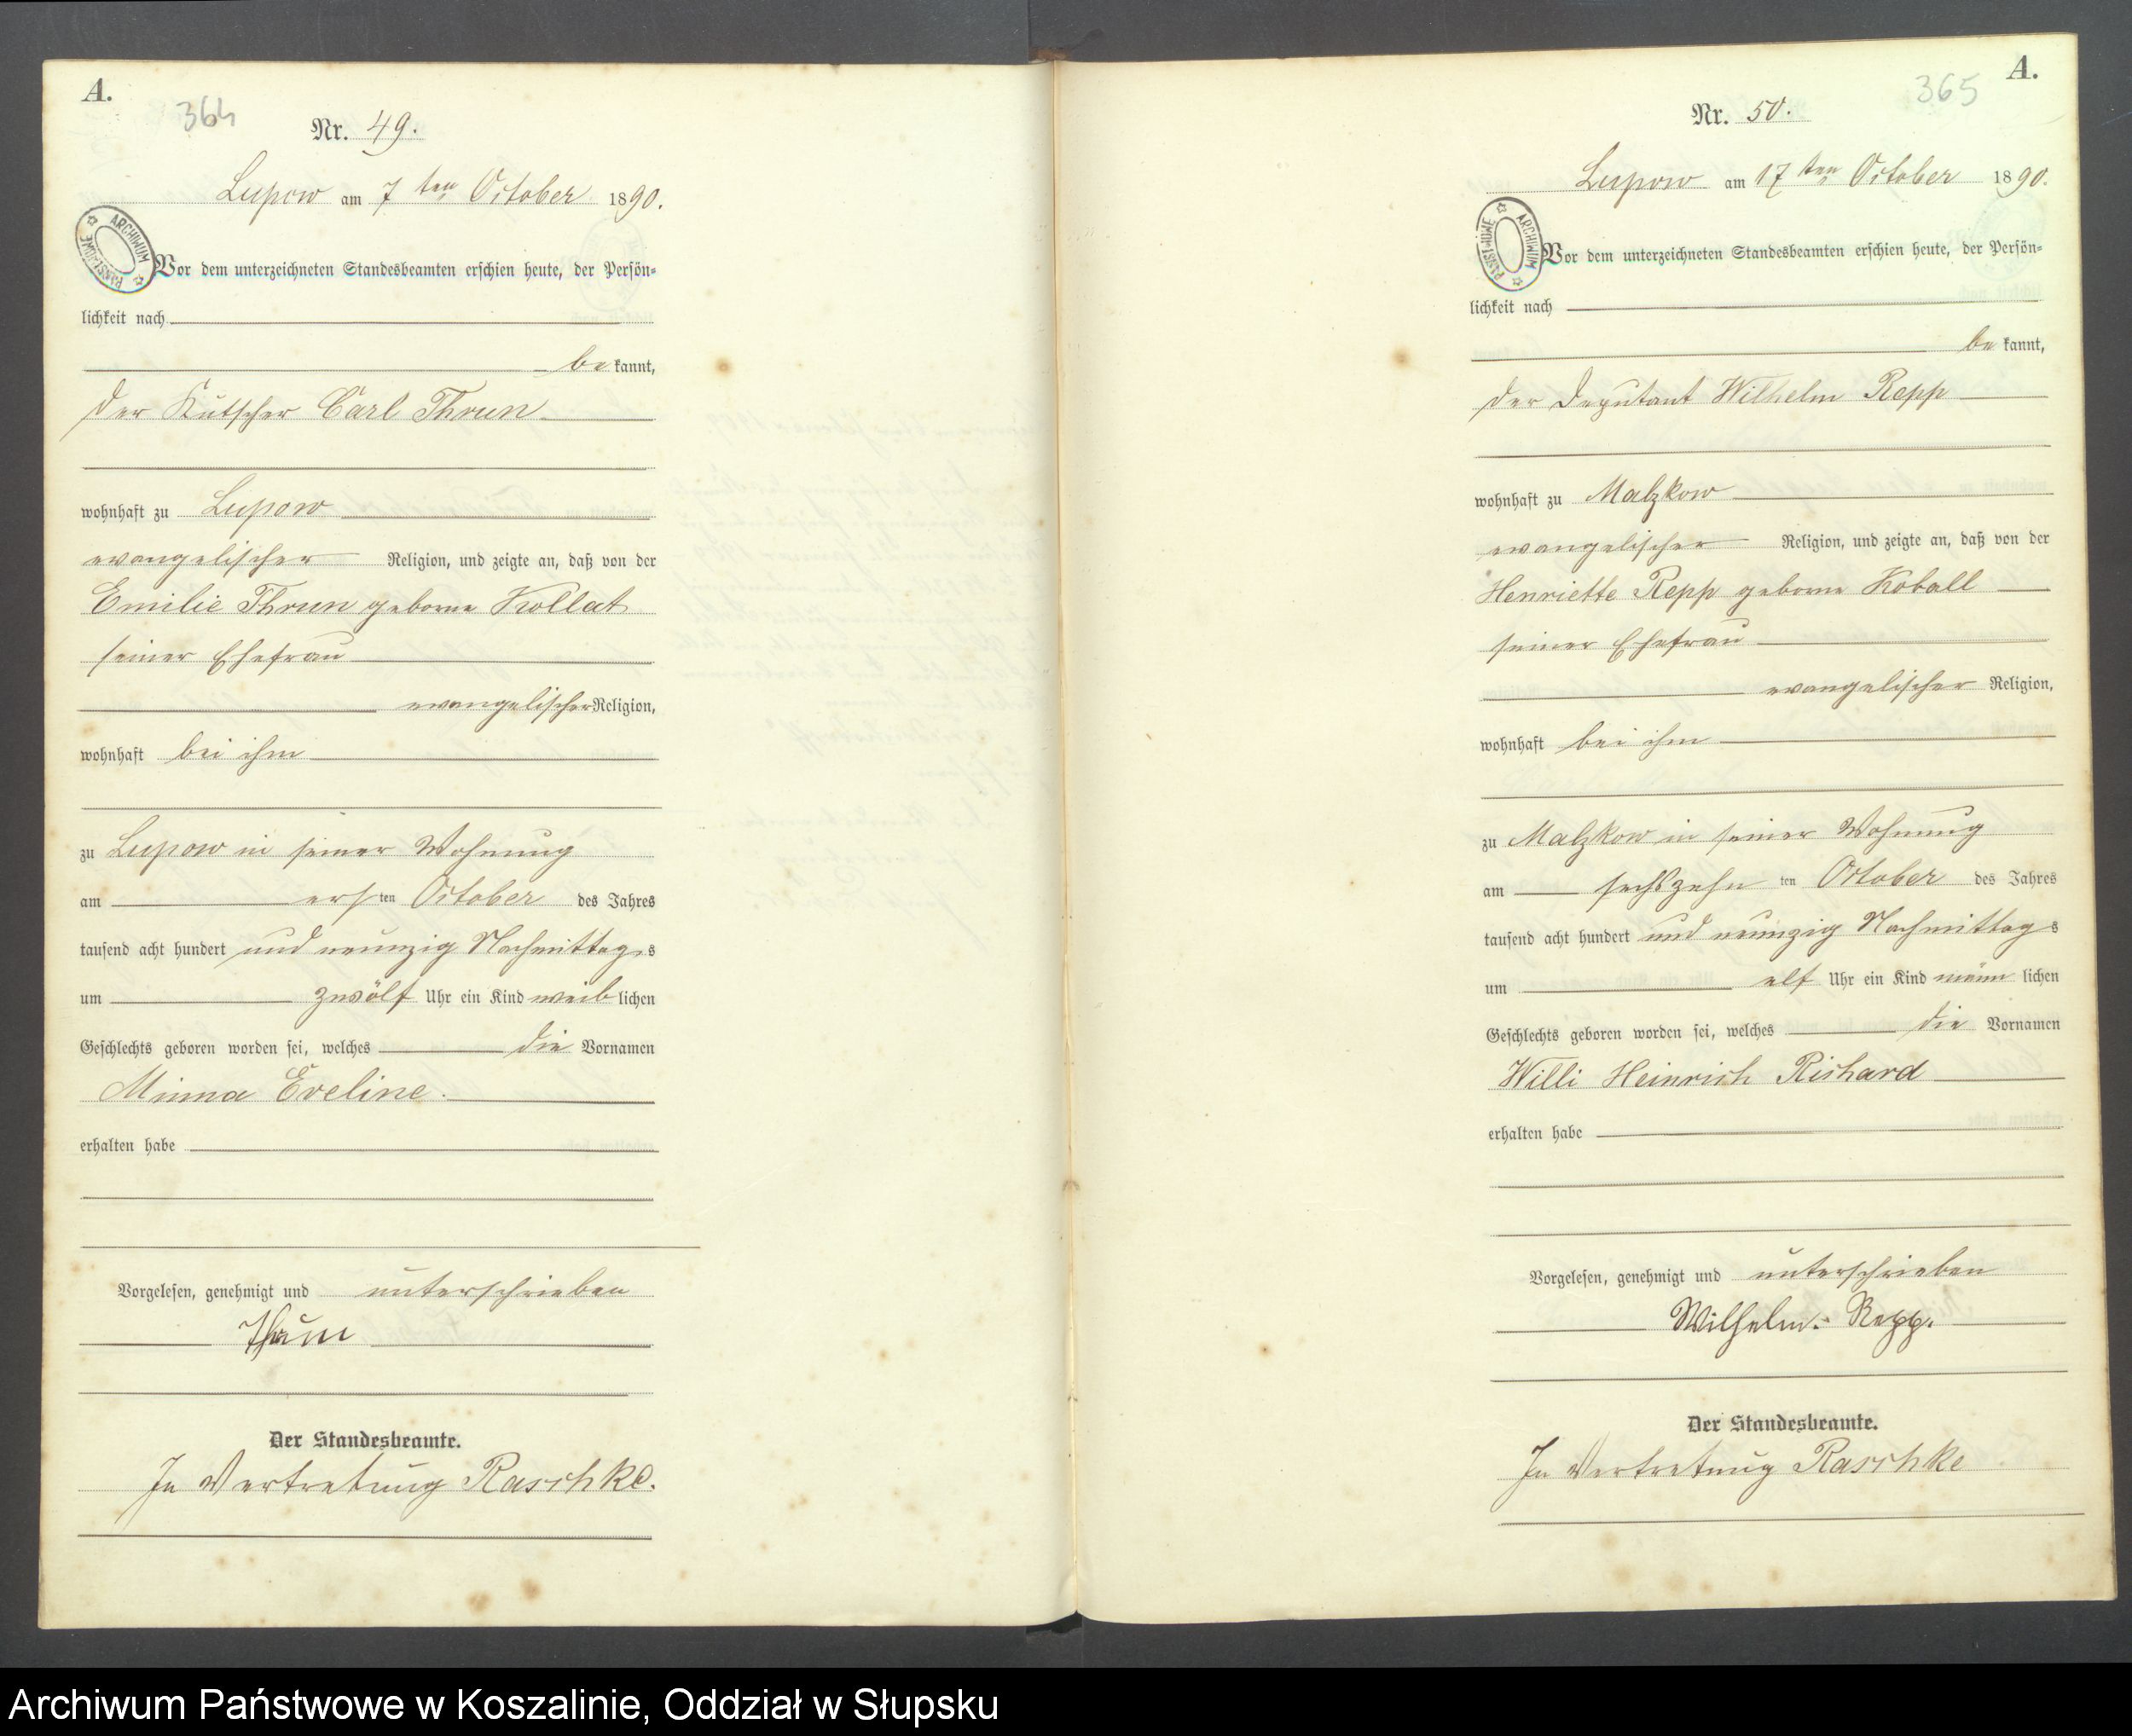 A.
364
Nr. 49.
Lupow am 7ten October 1890.
ARCHIWUM PAŃSTWOWE
Vor dem unterzeichneten Standesbeamten erschien heute, der Persön=
lichkeit nach
be kannt,
der Kutscher Carl Thrun
wohnhaft zu Lupow
evangelischer Religion, und zeigte an, daß von der
Emilie Thrun geborne Kollat
seiner Ehefrau
evangelischer Religion,
wohnhaft bei ihm
zu Lupow in seiner Wohnung
am ersten October des Jahres
tausend acht hundert und neunzig Nachmittags
um zwölf Uhr ein Kind weiblichen
Geschlechts geboren worden sei, welches die Vornamen
Minna Eveline.
erhalten habe
Vorgelesen, genehmigt und unterschrieben
Thrun
Der Standesbeamte.
In Vertretung Raschke.
A.
365
Nr. 50.
Lupow am 17ten October 1890.
ARCHIWUM PAŃSTWOWE
Vor dem unterzeichneten Standesbeamten erschien heute, der Persön=
lichkeit nach
be kannt,
der Deputant Wilhelm Repp
wohnhaft zu Malzkow
evangelischer Religion, und zeigte an, daß von der
Henriette Repp geborne Koball
seiner Ehefrau
evangelischer Religion,
wohnhaft bei ihm
zu Malzkow in seiner Wohnung
am sechszehn ten October des Jahres
tausend acht hundert und neunzig Nachmittags
um elf Uhr ein Kind männlichen
Geschlechts geboren worden sei, welches die Vornamen
Willi Heinrich Richard
erhalten habe
Vorgelesen, genehmigt und unterschrieben
Wilhelm. Repp.
Der Standesbeamte.
In Vertretung Raschke
Archiwum Państwowe w Koszalinie, Oddział w Słupsku